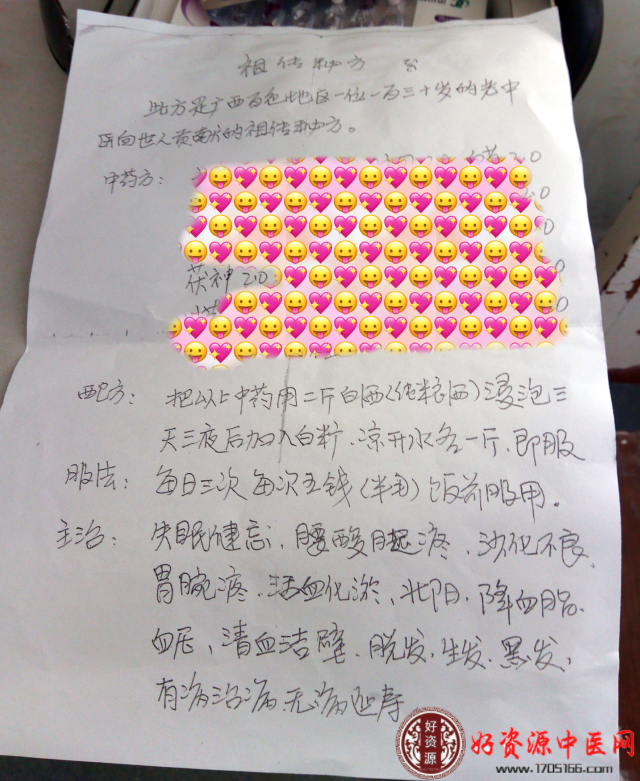 祖传秘方
此方是广西百色地区一位一百三十岁的老中
医向世人贡献的祖传秘方。
中药方：
20
茯神20
配方：把以上中药用二斤白酒(纯粮酒)浸泡三
天三夜后加入白糖、凉开水各一斤，即服
服法：每日三次 每次五钱(半两)饭前服用。
主治：失眠健忘，腰酸腿疼、消化不良、
胃脘疼、活血化淤、壮阳、降血脂、
血压、清血洁壁、脱发、生发、黑发、
有病治病、无病延寿
好资源
好资源中医网
www.1705166.com